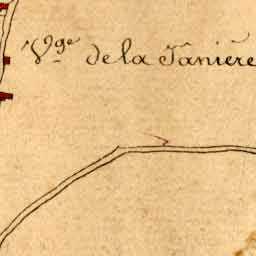 Vge de la Tanière